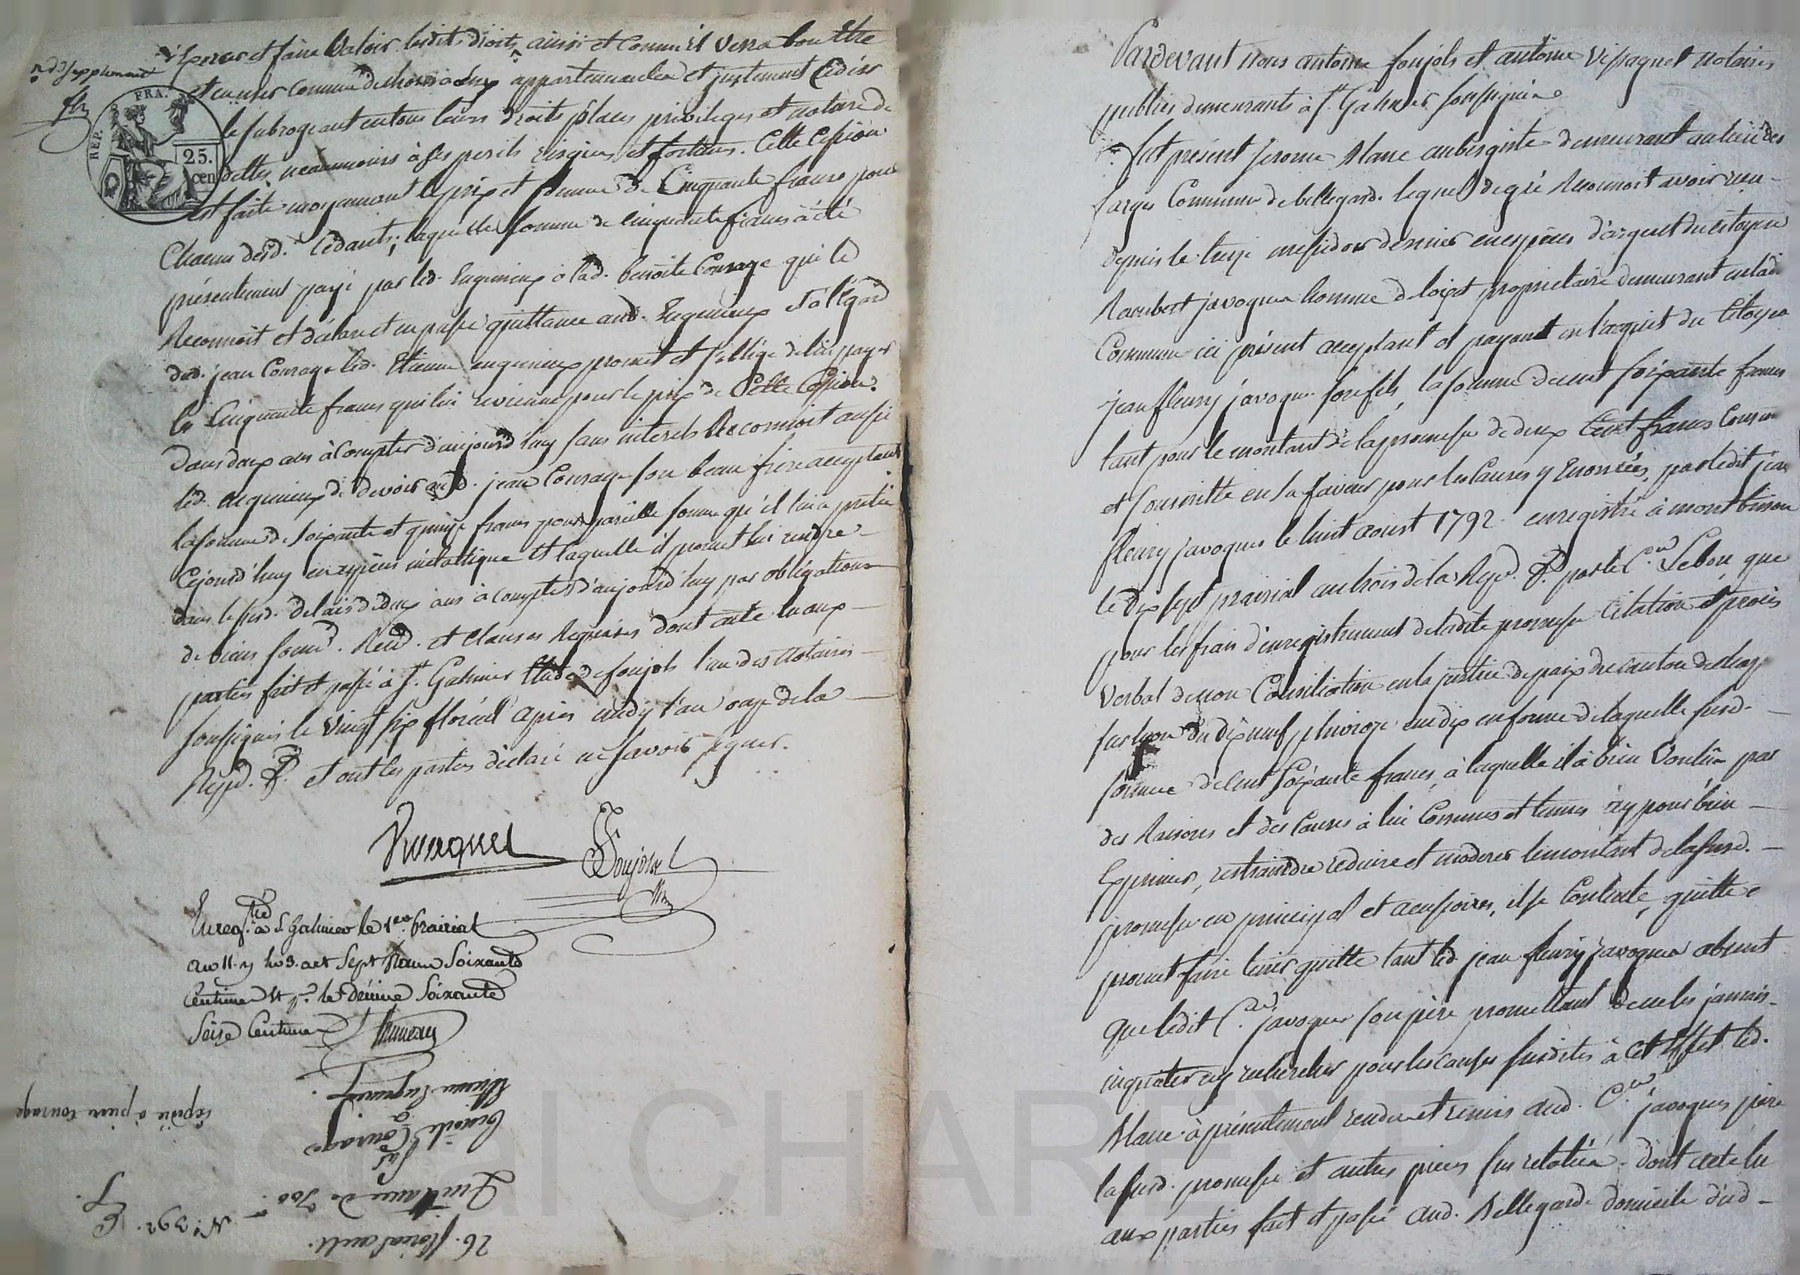 Exercer et faire Valoir lesdits droits, ainsi et comme il verra bon etre
et en user comme de choses à eux appartenantes et justement cédées
le subrogeant en tous leurs droits places privileges et nature de
dettes neanmoins à ses perils risques et fortunes. Cette Cession
est faite moyennant le prix et somme de Cinquante francs pour
Chacun desd. Cédants; laquelle somme de cinquante francs à été
présentement payé par led. Enguineux à lad. benoite Courage qui le
Reconnoit et déclare et en passe quittance aud. Enguineux a l'égard
dud. jean Courage led. Etienne enguineux promet et s'oblige de lui payer
les Cinquante francs qui lui reviennent pour le prix de Cette Cession.
Dans deux ans à Compter d'aujourd'huy sans interets Reconnoit aussi
led. enguineux de devoir aud. jean Courage son beau frère acceptant
la somme de soixante et quinze francs pour pareille somme qu'il lui a pretée
Cejourd'huy en espèces métallique et laquelle il promet lui rendre
dans le susd. delais de deux ans à compter d'aujourd'huy par obligations
de biens soumd. Rend. et clauses Requises dont acte lu aux
parties fait et passé à St. Galmier Etude de foujols l'un des notaires
soussignés le Vingt six floréal après midy l'an onze de la
Repd. F. et ont les parties déclaré ne savoir signer.
REP. FRA.
25.
cen
Foujols
Enregtré. à St Galmier le 1er. Prairial
an 11. reçu sept francs soixante
Centimes et pr. le Dixième Soixante
Seize Centimes
expédié à pierre courage
Etienne Enguineux
à
Benoite Courage
Quittance de 100
26. floréal an 11.
N°. 392.
Pardevant nous antoine foujols et antoine Vissaguet notaires
publics demeurants à St. Galmier soussignés
fut présent Jerome Marre aubergiste demeurant au lieu des
farges Commune de bellegarde lequel de gré Reconnoit avoir reçu
depuis le treize messidor dernier en espèces d'argent du citoyen
Rambert javogues homme de loi et proprietaire demeurant en lad.
Commune ici présent acceptant et payant en l'acquit du Citoyen
jean fleury javogues son fils, la somme de cent soixante francs
tant pour le montant de la promesse de deux Cent francs Consen
et souscritte en sa faveur pour les Causes y Enoncées, par ledit jean
fleury javogues le huit aoust 1792. enregistré à montbrison
le dix sept prairial an trois de la Repd. F. par le Cen. Lebon que
pour les frais d'enregistrement de ladite promesse Citation et procès
Verbal de non Conciliation en la justice de paix du canton de
sur lyon du dix neuf pluviose an dix en forme de laquelle susd.
somme de Cent Soixante francs, à laquelle il à bien Voulû par
des Raisons et des Causes à lui Connues et tenues icy pour bien
Exprimées, restraindre reduire et moderer le montant de la susd.
promesse en principal et accessoires, il se Contente, quitte et
promet faire tenir quitte tant led. jean fleury javogues absent
que ledit Cen. javogues son père promettant de ne les jamais
inquieter ny rechercher pour les causes susdites à Cet Effet led.
Marre à présentement rendu et remis aud. Cen. javogues père
la susd. promesse et autres pieces sus relatées. dont acte lu
aux parties fait et passé aud. Bellegarde domicile dud